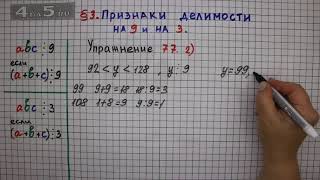 4a5.ru
§3. Признаки делимости
на 9 и на 3.
Упражнение 77. 2)
abc ⋮ 9
если
(a+b+c) ⋮ 9
abc ⋮ 3
если
(a+b+c) ⋮ 3
92 < y < 128 , y ⋮ 9
y = 99,
99 9+9=18 18:9=3
108 1+8=9 9:9=1